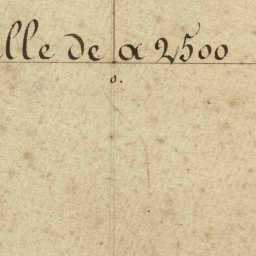 lle de α 2500
0.